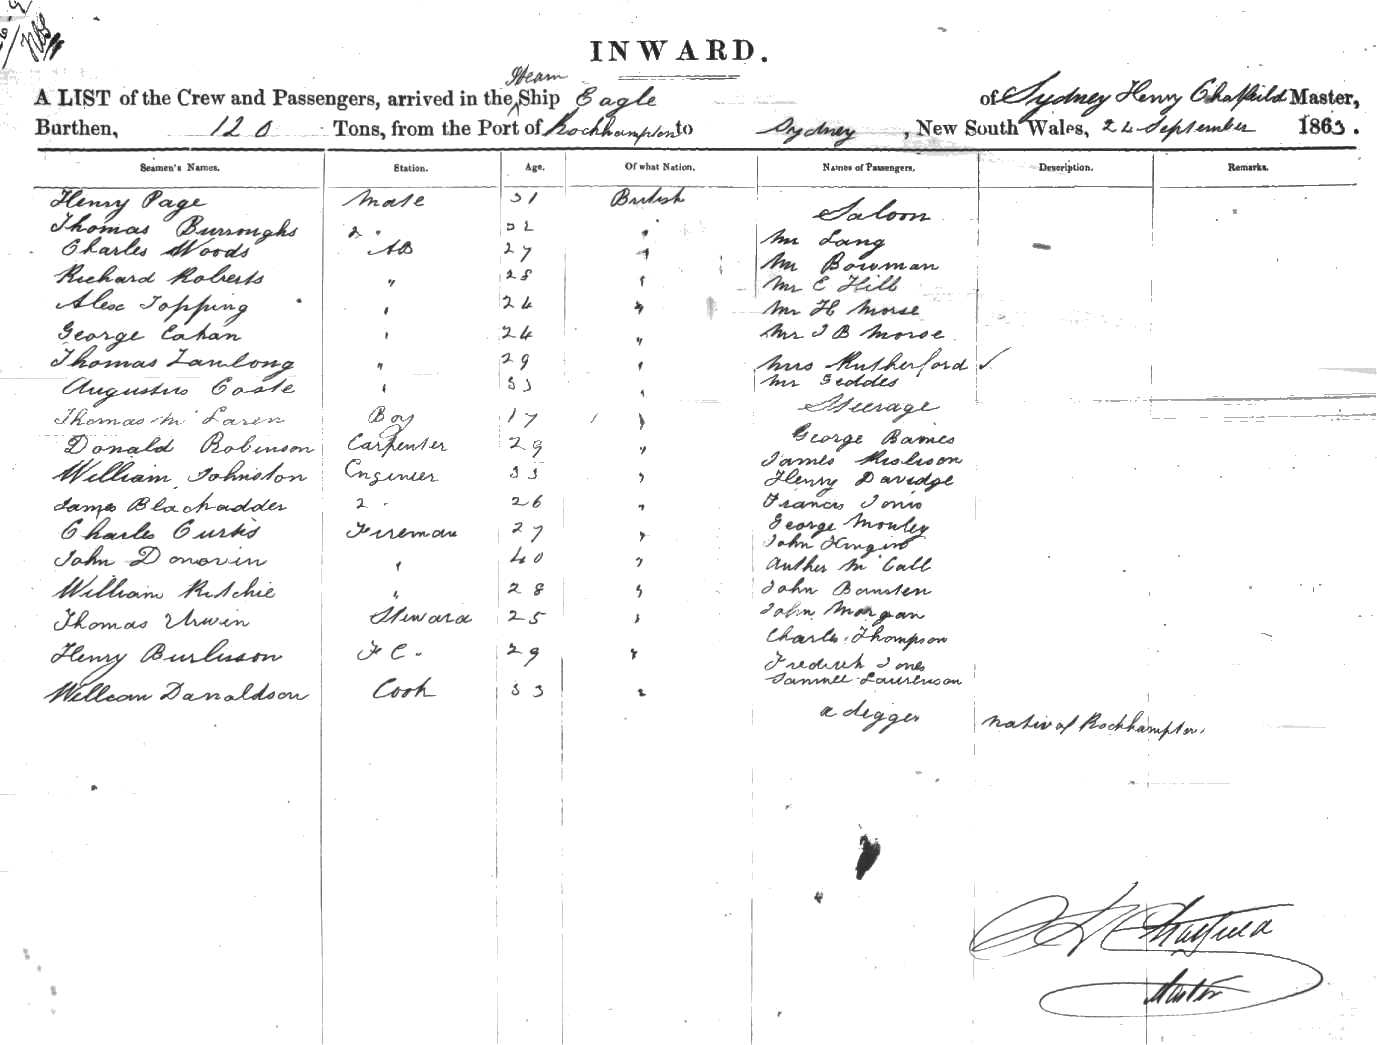 INWARD.
Steam
A LIST of the Crew and Passengers, arrived in the Ship Eagle of Sydney Henry Chatfield Master,
Burthen, 120 Tons, from the Port of Rockhampton to Sydney, New South Wales, 24 September 1863.
Seamen's Names. Station. Age. Of what Nation. Names of Passengers. Description. Remarks.
Henry Page Mate 31 British
Saloon
Thomas Burroughs 2 " 32 "
Charles Woods AB 27 " Mr Lang
Richard Roberts " 28 " Mr Bowman
Mr E Hill
Alex Topping " 24 " Mr H Morse
George Eahan " 24 " Mr J B Morse
Thomas " 29 " Mrs Rutherford ✓
Augustus Coate " 33 " Mr Geddes
Steerage
Thomas Mc Laren Boy 17 "
Donald Robinson Carpenter 29 " George Barnes
James
William Johnston Engineer 33 " Henry Davidge
James Blackadder 2 " 26 " Francis
Charles Curtis Fireman 27 " George
John
John Donovin " 40 " Auther Mc Call
William Ritchie " 28 " John
Thomas Urwin Steward 25 " John Morgan
Charles Thompson
Henry Burleson F C " 29 " Fredrick Jones
William Danaldson Cook 33 " Sammuel Laurenson
a digger native of Rockhampton.
H Chatfield
Master